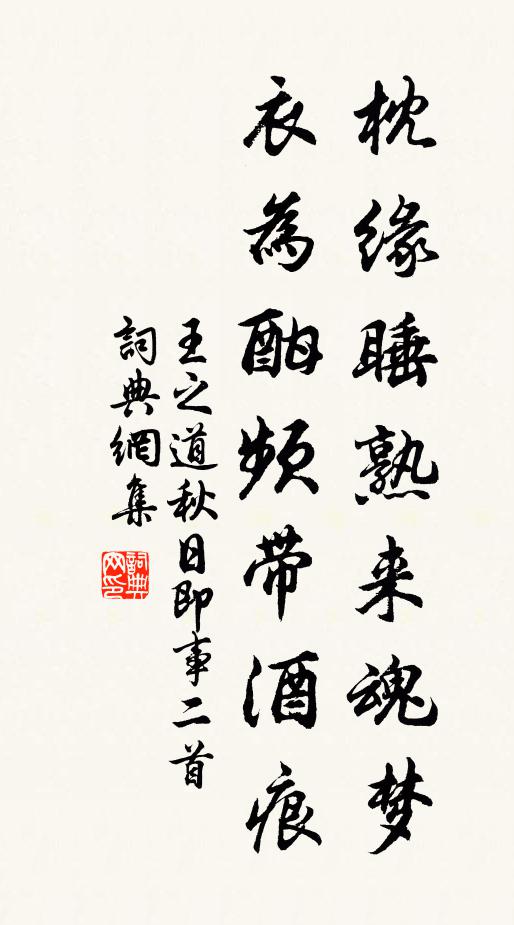 枕緣睡熟来魂梦
衣為酣頻带酒痕
王之道秋日即事二首
詞典網集
詞典網印